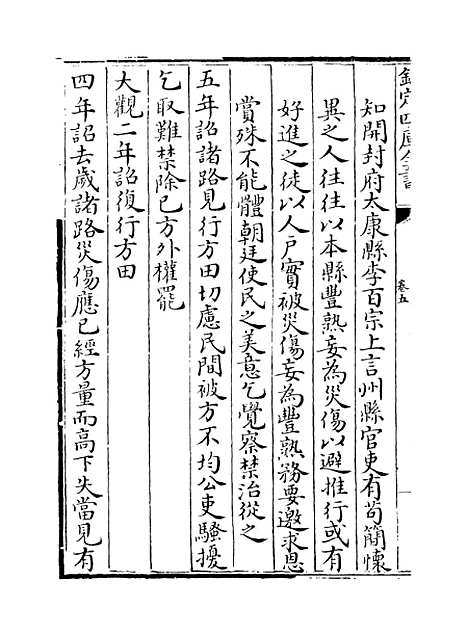 欽定四庫全書
卷五
知開封府太康縣李百宗上言州縣官吏有苟簡懷
異之人往往以本縣豐熟妄為災傷以避推行或有
好進之徒以人戶實被災傷妄為豐熟務要邀求恩
賞殊不能體朝廷使民之美意乞覺察禁治從之
五年詔諸路見行方田切慮民間被方不均公吏騷擾
乞取難禁除已方外權罷
大觀二年詔復行方田
四年詔去歲諸路災傷應已經方量而高下失當見有